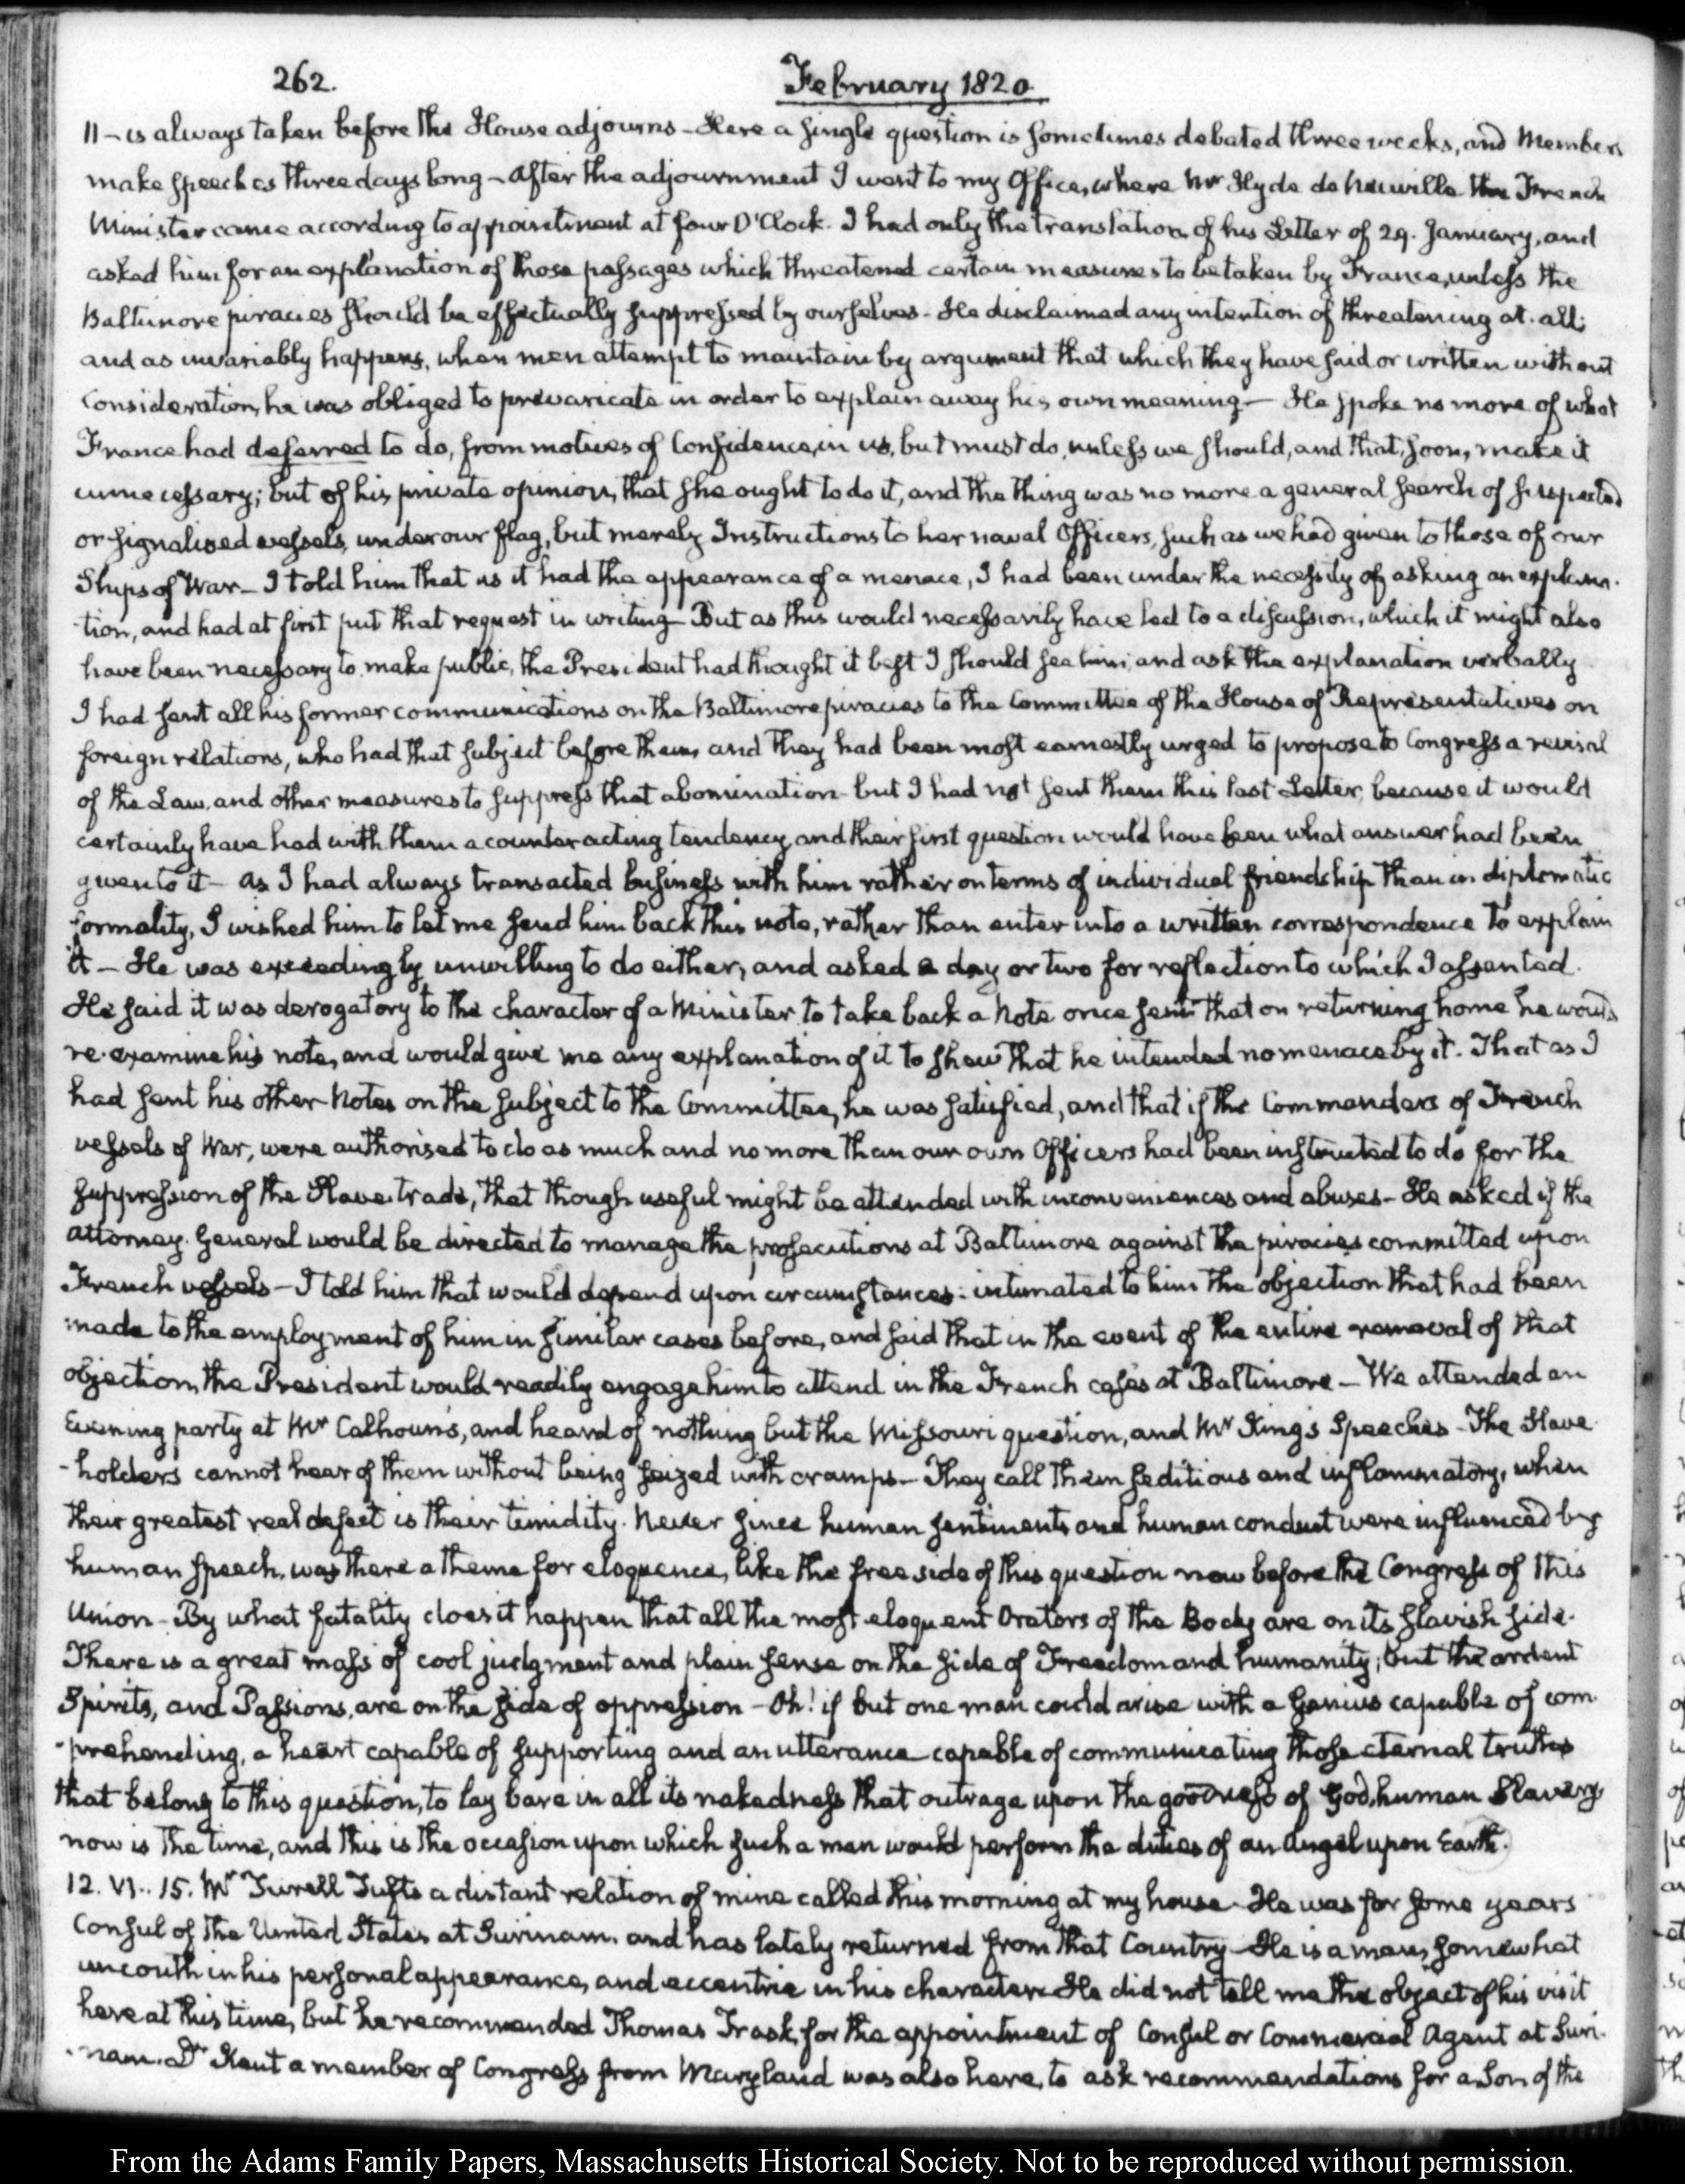 262.
February 1820.
11 - is always taken before the House adjourns - Here a single question is sometimes debated three weeks, and Members
make speeches three days long - After the adjournment I went to my Office, where Mr Hyde de Neuville the French
Minister came according to appointment at four O'Clock. I had only the translation of his Letter of 29. January, and
asked him for an explanation of those passages which threatened certain measures to be taken by France, unless the
Baltimore piracies should be effectually suppressed by ourselves - He disclaimed any intention of threatening at all;
and as invariably happens, when men attempt to maintain by argument that which they have said or written without
Consideration, he was obliged to prevaricate in order to explain away his own meaning - He spoke no more of what
France had deferred to do, from motives of Confidence, in us, but must do, unless we should, and that, soon, make it
unnecessary; but of his private opinion, that she ought to do it, and the thing was no more a general search of suspected
or signalized vessels, under our flag, but merely Instructions to her naval Officers, such as we had given to those of our
Ships of War - I told him that as it had the appearance of a menace, I had been under the necessity of asking an explana-
-tion, and had at first put that request in writing - But as this would necessarily have led to a discussion, which it might also
have been necessary to make public, the President had thought it best I should see him, and ask the explanation verbally
I had sent all his former communications on the Baltimore piracies to the Committee of the House of Representatives on
foreign relations, who had that subject before them, and they had been most earnestly urged to propose to Congress a revisal
of the Law, and other measures to suppress that abomination - but I had not sent them this last Letter, because it would
certainly have had with them a counteracting tendency, and their first question would have been what answer had been
given to it - As I had always transacted business with him rather on terms of individual friendship than in diplomatic
formality, I wished him to let me send him back this note, rather than enter into a written correspondence to explain
it - He was exceedingly unwilling to do either, and asked a day or two for reflection to which I assented.
He said it was derogatory to the character of a Minister to take back a Note once sent - That on returning home he would
re-examine his note, and would give me any explanation of it to shew that he intended no menace by it. That as I
had sent his other Notes on the subject to the Committee, he was satisfied, and that if the Commanders of French
vessels of War, were authorised to do as much and no more than our own Officers had been instructed to do for the
suppression of the Slave trade, that though useful might be attended with inconveniences and abuses - He asked if the
Attorney General would be directed to manage the prosecutions at Baltimore against the piracies committed upon
French vessels - I told him that would depend upon circumstances: intimated to him the objection that had been
made to the employment of him in similar cases before, and said that in the event of the entire removal of that
objection, the President would readily engage him to attend in the French cases at Baltimore - We attended an
Evening party at Mr Calhoun's, and heard of nothing but the Missouri question, and Mr King's Speeches - The Slave-
-holders cannot hear of them without being seized with cramps - They call them seditious and inflammatory, when
their greatest real defect is their timidity. Never since human sentiments and human conduct were influenced by
human speech, was there a theme for eloquence, like the free side of this question now before the Congress of this
Union - By what fatality does it happen that all the most eloquent Orators of the Body are on its slavish side.
There is a great mass of cool judgment and plain sense on the side of Freedom and humanity; but the ardent
Spirits, and Passions, are on the side of oppression - Oh! if but one man could arise with a Genius capable of com-
-prehending, a heart capable of supporting and an utterance capable of communicating those eternal truths
that belong to this question, to lay bare in all its nakedness that outrage upon the goodness of God, human Slavery,
now is the time, and this is the occasion upon which such a man would perform the duties of an Angel upon Earth.
12. VI. 15. Mr Turell Tufts a distant relation of mine called this morning at my house - He was for some years
Consul of the United States at Surinam, and has lately returned from that Country - He is a man, somewhat
uncouth in his personal appearance, and eccentric in his character - He did not tell me the object of his visit
here at this time, but he recommended Thomas Trask, for the appointment of Consul or Commercial Agent at Suri-
-nam. Dr Kent a member of Congress from Maryland was also here, to ask recommendations for a Son of the
From the Adams Family Papers, Massachusetts Historical Society. Not to be reproduced without permission.